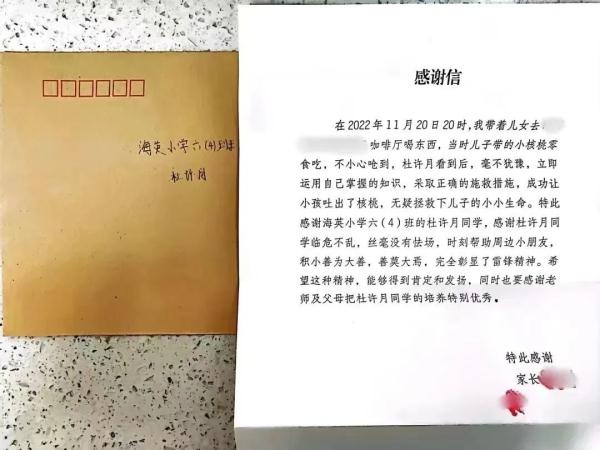 海英小学六(4)班
杜许月
感谢信
在2022年11月20日20时,我带着儿女去
咖啡厅喝东西,当时儿子带的小核桃零
食吃,不小心呛到,杜许月看到后,毫不犹豫,立即
运用自己掌握的知识,采取正确的施救措施,成功让
小孩吐出了核桃,无疑拯救下儿子的小小生命。特此
感谢海英小学六(4)班的杜许月同学,感谢杜许月同
学临危不乱,丝毫没有怯场,时刻帮助周边小朋友,
积小善为大善,善莫大焉,完全彰显了雷锋精神。希
望这种精神,能够得到肯定和发扬,同时也要感谢老
师及父母把杜许月同学的培养特别优秀。
特此感谢
家长